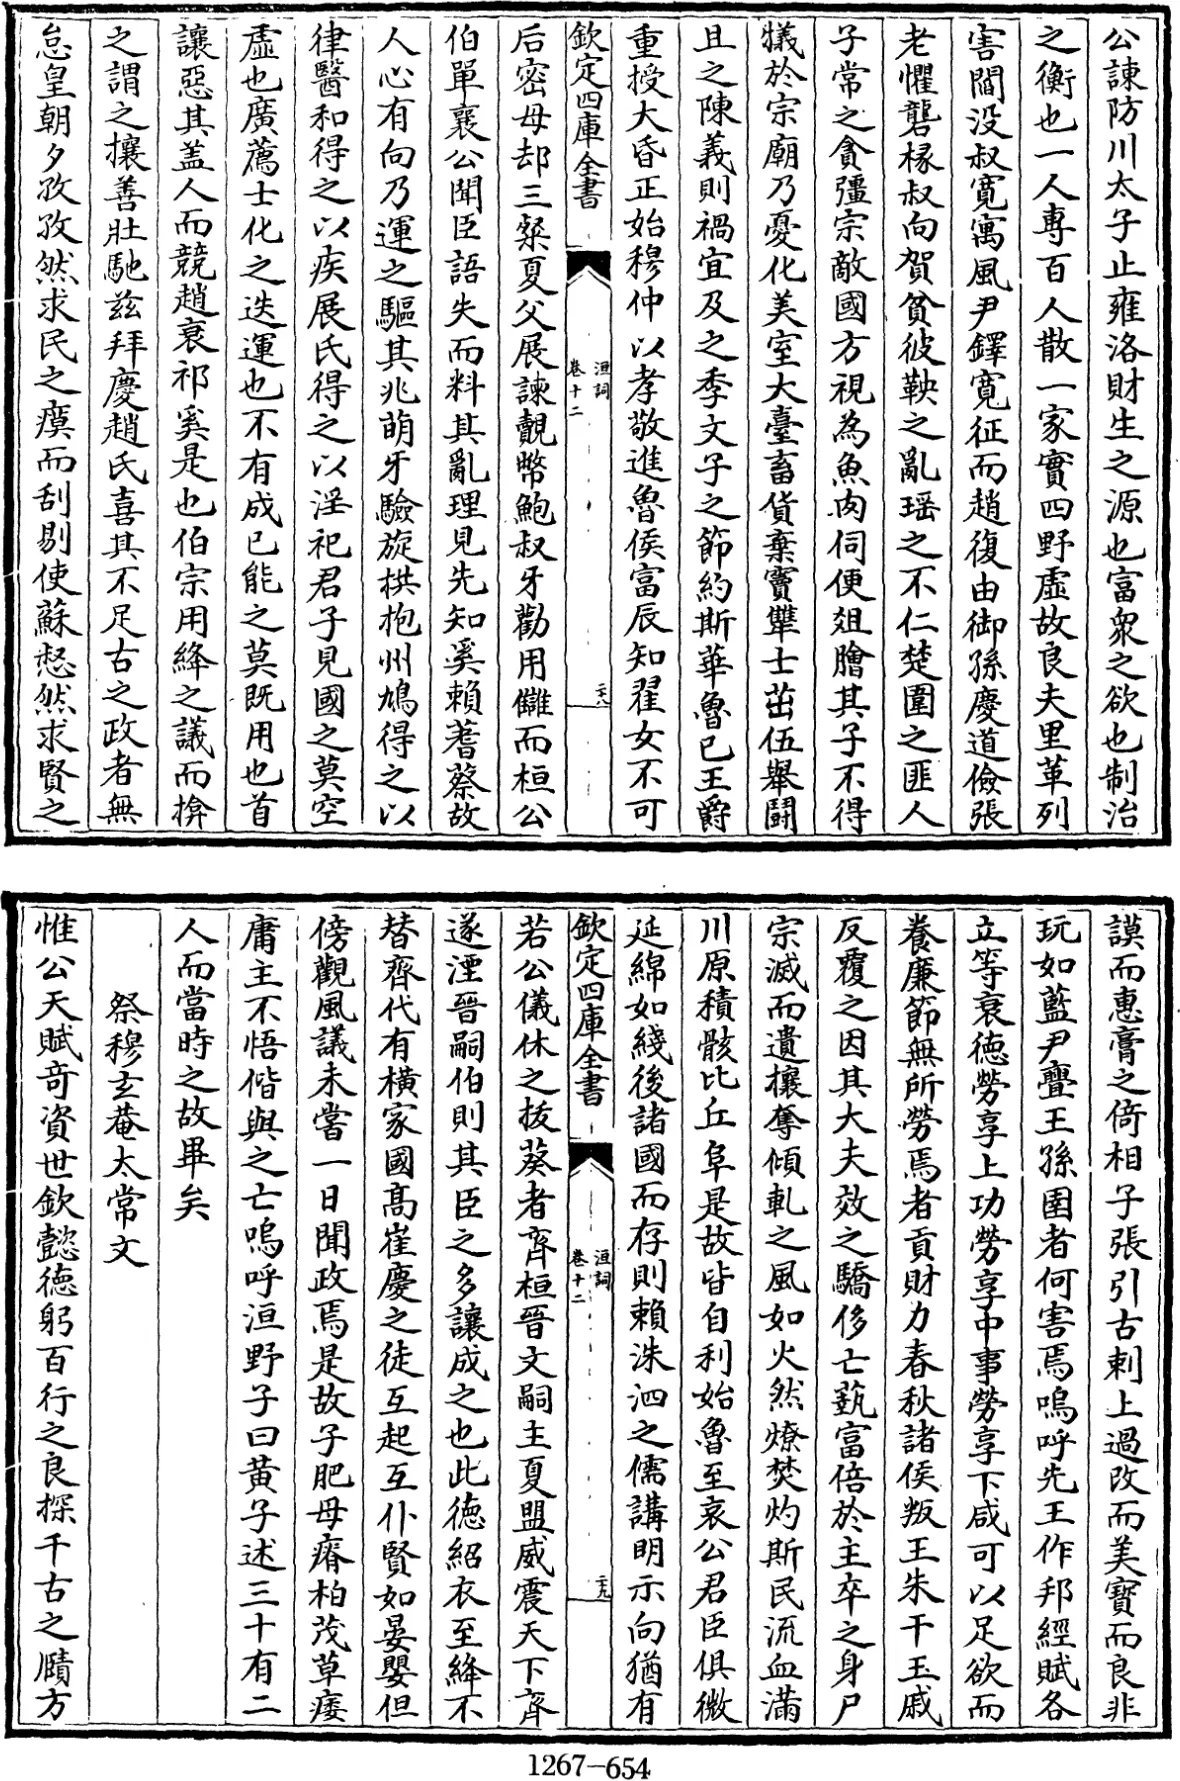 公諫防川太子止雍洛財生之源也富衆之欲也制治
之衡也一人專百人散一家實四野虛故良夫里革列
害閻没叔寛寓風尹鐸寛征而趙復由御孫慶道儉張
老懼礱椽叔向賀貧彼鞅之亂瑶之不仁楚圍之匪人
子常之貪彊宗敵國方視為魚肉伺便俎膾其子不得
犧於宗廟乃憂化美室大臺畜貨棄寳犨士茁伍舉鬪
且之陳義則禍宜及之季文子之節約斯華魯已王爵
重授大昏正始穆仲以孝敬進魯侯富辰知翟女不可
欽定四庫全書
洹詞
卷十二
二八
后密母却三粲夏父展諫覿幣鮑叔牙勸用讎而桓公
伯單襄公聞臣語失而料其亂理見先知奚賴蓍蔡故
人心有向乃運之驅其兆萌牙驗旋拱抱州鳩得之以
律醫和得之以疾展氏得之以淫祀君子見國之莫空
虛也廣薦士化之迭運也不有成已能之莫既用也首
讓惡其盖人而競趙衰祁奚是也伯宗用絳之議而揜
之謂之攘善壯馳兹拜慶趙氏喜其不足古之政者無
怠皇朝夕孜孜然求民之瘼而刮剔使蘇惄然求賢之
謨而惠膏之倚相子張引古刺上過改而美寳而良非
玩如藍尹亹王孫圉者何害焉嗚呼先王作邦經賦各
立等衰德勞享上功勞享中事勞享下咸可以足欲而
養廉節無所勞焉者貢財力春秋諸侯叛王朱干玉戚
反覆之因其大夫效之驕侈亡蓺富倍於主卒之身尸
宗滅而遺攘奪傾軋之風如火然燎焚灼斯民流血滿
川原積骸比丘阜是故皆自利始魯至哀公君臣俱微
延綿如綫後諸國而存則賴洙泗之儒講明示向猶有
欽定四庫全書
洹詞
卷十二
二九
若公儀休之拔葵者齊桓晉文嗣主夏盟威震天下齊
遂湮晉嗣伯則其臣之多讓成之也此德紹衣至絳不
替齊代有横家國髙崔慶之徒互起互仆賢如晏嬰但
傍觀風議未嘗一日聞政焉是故子肥母瘠柏茂草痿
庸主不悟偕與之亡嗚呼洹野子曰黄子述三十有二
人而當時之故畢矣
祭穆玄菴太常文
惟公天賦竒資世欽懿德躬百行之良探千古之賾方
1267-654